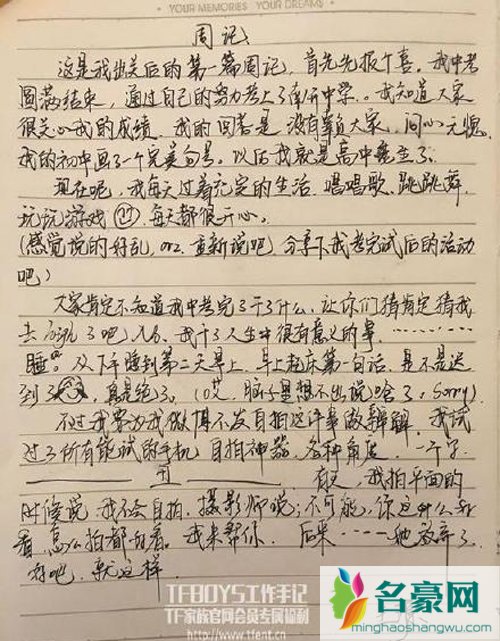 YOUR MEMORIES · YOUR DREAMS
周记
这是我出关后的第一篇周记，首先先报个喜。我中考
圆满结束，通过自己的努力考上了南开中学。我知道大家
很关心我的成绩，我的回答是没有辜负大家，问心无愧
我的初中画了一个完美句号。以后我就是高中生了。
现在呢，我每天过着充实的生活，唱唱歌，跳跳舞
玩玩游戏 每天都很开心。
(感觉说的好乱，orz，重新说吧，分享下我考完试后的活动
吧)
大家肯定不知道我中考完了干了什么，让你们猜肯定猜我
去 了吧，No，我干了人生中很有意义的事………
睡。从下午睡到第二天早上，早上起床第一句话，是不是迟
到了 真是绝了。(哎，脑子里想不出说啥了，sorry)
不过我要为我微博不发自拍这件事做辩解，我试
过了所有能试的手机，自拍神器，各种角度，一个字
丑 有一天，我拍平面的
时候说，我不会自拍，摄影师说：不可能，你这么好
看，怎么拍都好看。我来帮你。后来……她放弃了。
好吧，就这样。
TFBOYS工作手记
TF家族官网会员专属福利
http://www.tfent.cn
名豪网
minghaoshangwu.com